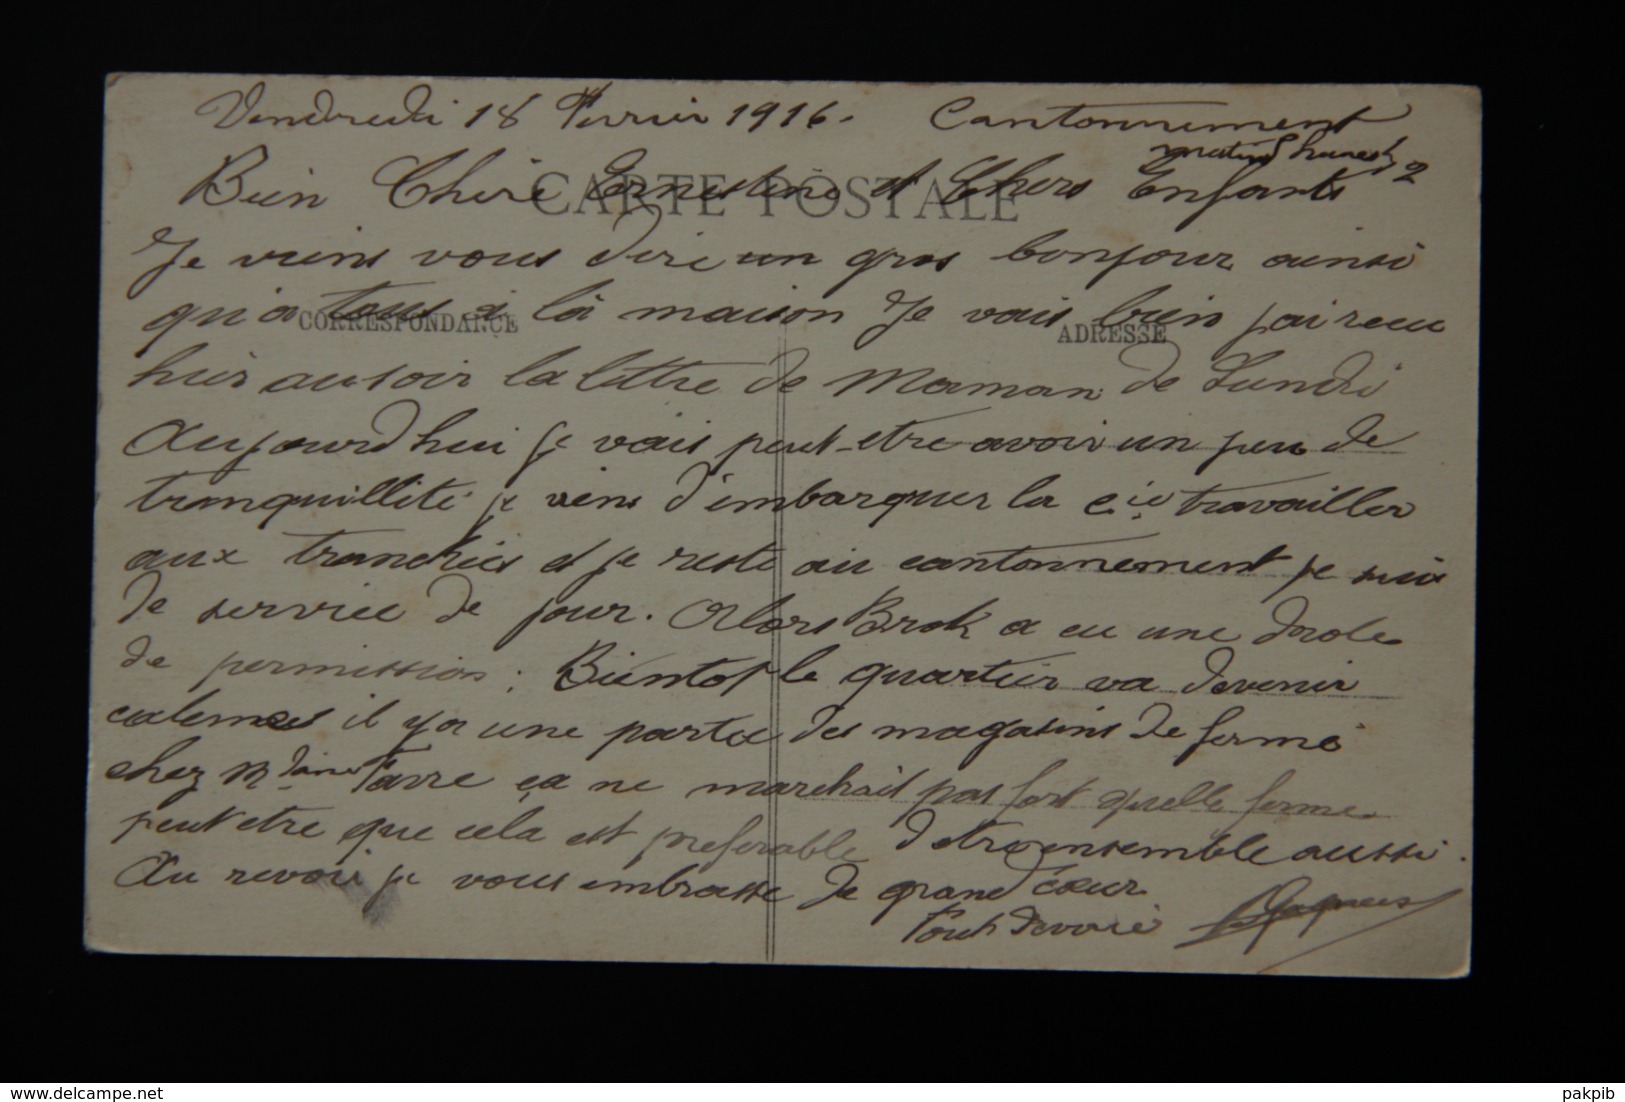 Vendredi 18 Fevrier 1916. Cantonnement
matin heures 1/2
CARTE POSTALE
Bien Chère Ernestine et Chers Enfants
Je viens vous dire un gros bonjour ainsi
qu'a tous à là maison Je vais bien j'ai recu
CORRESPONDANCE
ADRESSE
hier au soir la lettre de Maman de Lundi
Aujourd'hui je vais peut-etre avoir un peu de
tranquillité je viens d'embarquer la Cie travailler
aux tranchées et je reste au cantonnement je suis
de service de jour. Alors Brok a eu une drole
de permission. Bientot le quartier va devenir
calme il y a une partie des magasins de fermé
chez Mdame Favre ça ne marchait pas fort quelle ferme
peut etre que cela est preferable d'etre ensemble aussi.
Au revoir je vous embrasse de grand cœur
Tout devoué Jacques
pakpib
www.delcampe.net